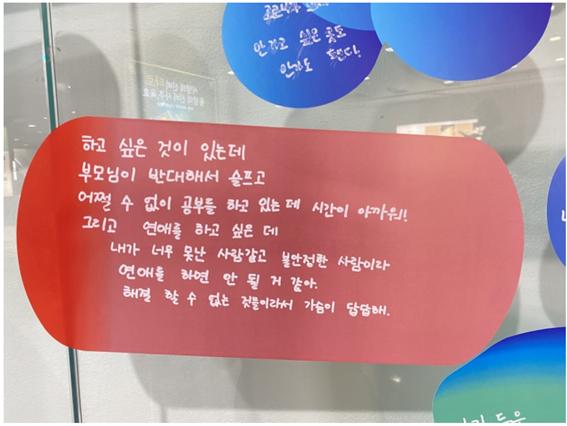 안가고 싶은 곳도
안가도 된다!
하고 싶은 것이 있는데
부모님이 반대해서 슬프고
어쩔 수 없이 공부를 하고 있는데 시간이 아까워!
그리고 연애를 하고 싶은 데
내가 너무 못난 사람같고 불안정한 사람이라
연애를 하면 안 될 거 같아.
해결 할 수 없는 것들이라서 가슴이 답답해.